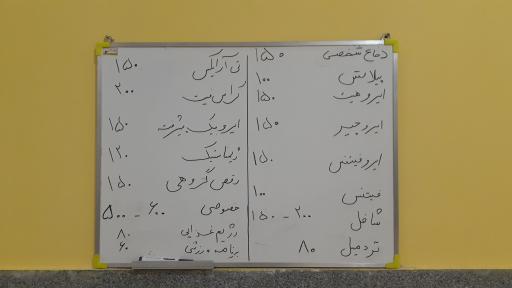 دفاع شخصی ۱۵۰
پیلاتس ۱۰۰
ایروهیت ۱۵۰
ایروجیم ۱۵۰
ایروفیتنس ۱۵۰
فیتنس ۱۰۰
شافل ۲۰۰ - ۱۵۰
تردمیل ۸۰
تی آر ایکس ۱۵۰
کراس فیت ۲۰۰
ایروبیک پیشرفته ۱۵۰
ژیمناستیک ۱۲۰
رقص گروهی ۱۵۰
خصوصی ۶۰۰ - ۵۰۰
رژیم غذایی ۸۰
برنامه ورزشی ۶۰